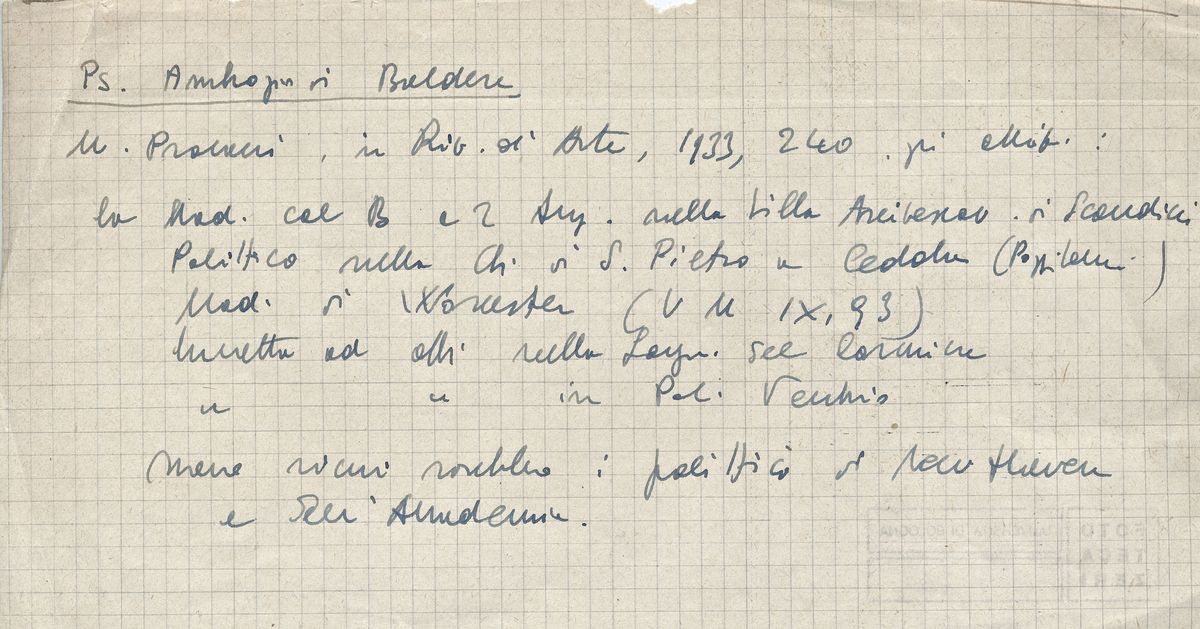 Ps. Ambrogio di Baldese
U. Procacci, in Riv. di Arte, 1933, 240. gli attrib. :
la Mad. col B e 2 Ang. nella Villa Arcivescov. di Scandicci
Polittico nella Ch. di S. Pietro a Cedda (Poggibonsi)
Mad. di Worcester (V M IX, 93)
lunetta ad affr. nella Sagr. del Carmine
" " in Pal. Vecchio
meno sicuri sarebbero i polittici di New Haven
e dell'Accademia.
FOTO
TECA
ZERI
UNIVERSITÀ DI BOLOGNA